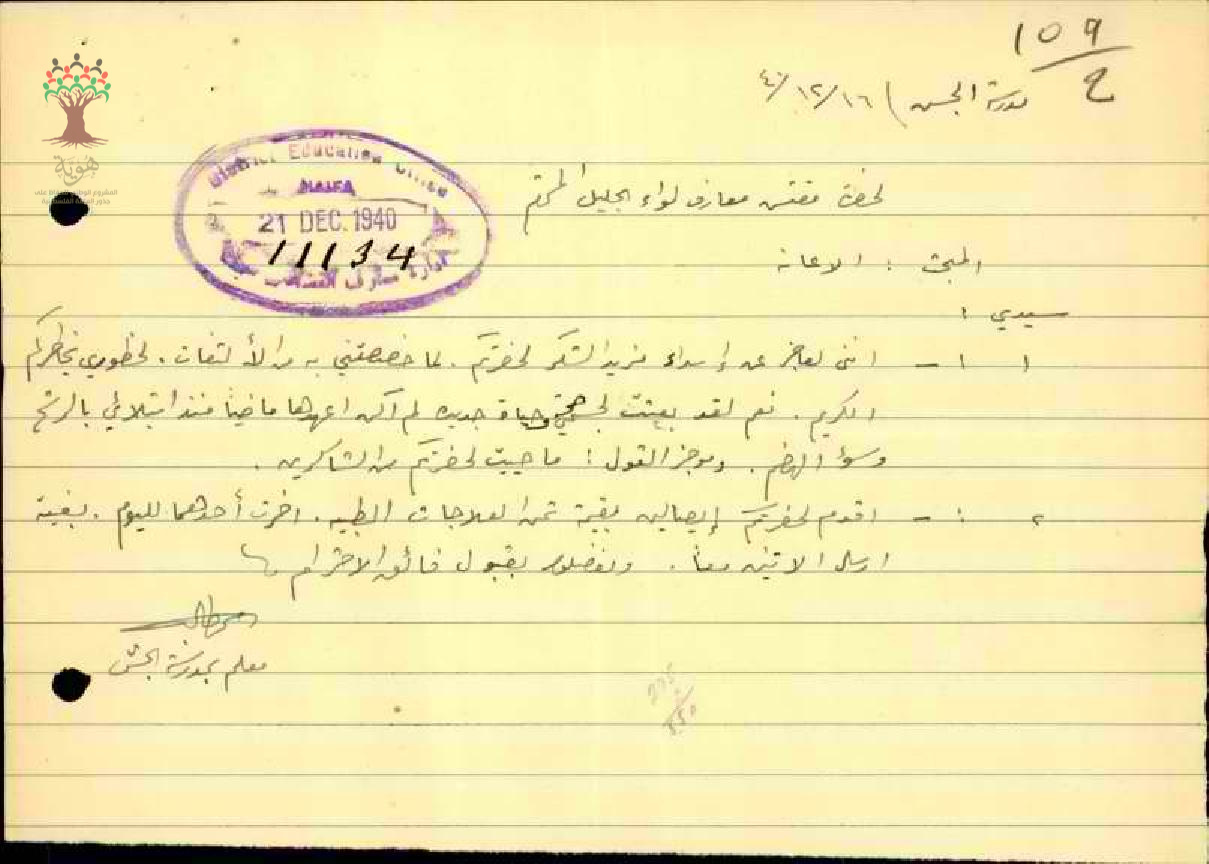 109
ح
مدرسة الجش ) ١٦/١٢/٤٠
هوية
District Education Office
HAIFA
21 DEC. 1940
11134
ادارة معارف
لحضرة مفتش معارف لواء الجليل المحترم
المبحث : الاعانة
سيدي :
١ — انني لعاجز عن إسداء مزيد الشكر لحضرتكم . لما خصصتني به من الألتفات . لحظوري بخاطركم
الكريم . نعم لقد بعثت لجسمي حياة جديده لم اكن اعهدها ماضياً منذ ابتلائي بالرشح
وسؤ الهضم . وموجز القول : ما حييت لحضرتكم من الشاكرين .
٢ : — اقدم لحضرتكم إيصالين بقيمة ثمن العلاجات الطبيه . اخرت أحدهما لليوم . بغية
ارسال الاثنين معاً . وتفضلوا بقبول فائق الاحترام
معلم بمدرسة الجش